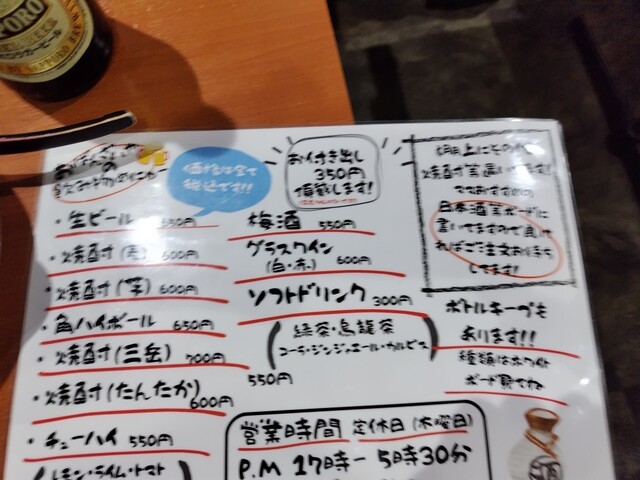 お付き出し
350円
頂戴します!
価格は全て
税込です!!
・生ビール 550円
・焼酎(麦) 600円
・焼酎(芋) 600円
・角ハイボール 650円
・焼酎(三岳) 700円
・焼酎(たんたか)
600円
・チューハイ 550円
(レモン・ライム・トマト
梅酒 550円
グラスワイン
(白・赤) 600円
ソフトドリンク 300円
(緑茶・烏龍茶
コーラ・ジンジャエール・カルピス)
550円
営業時間 定休日(木曜日)
P.M 17時ー5時30分
日本酒等ボードに
書いてますので良け
ればご注文お待ち
してます!
ボトルキープも
あります!!
種類はホワイト
ボード見てね